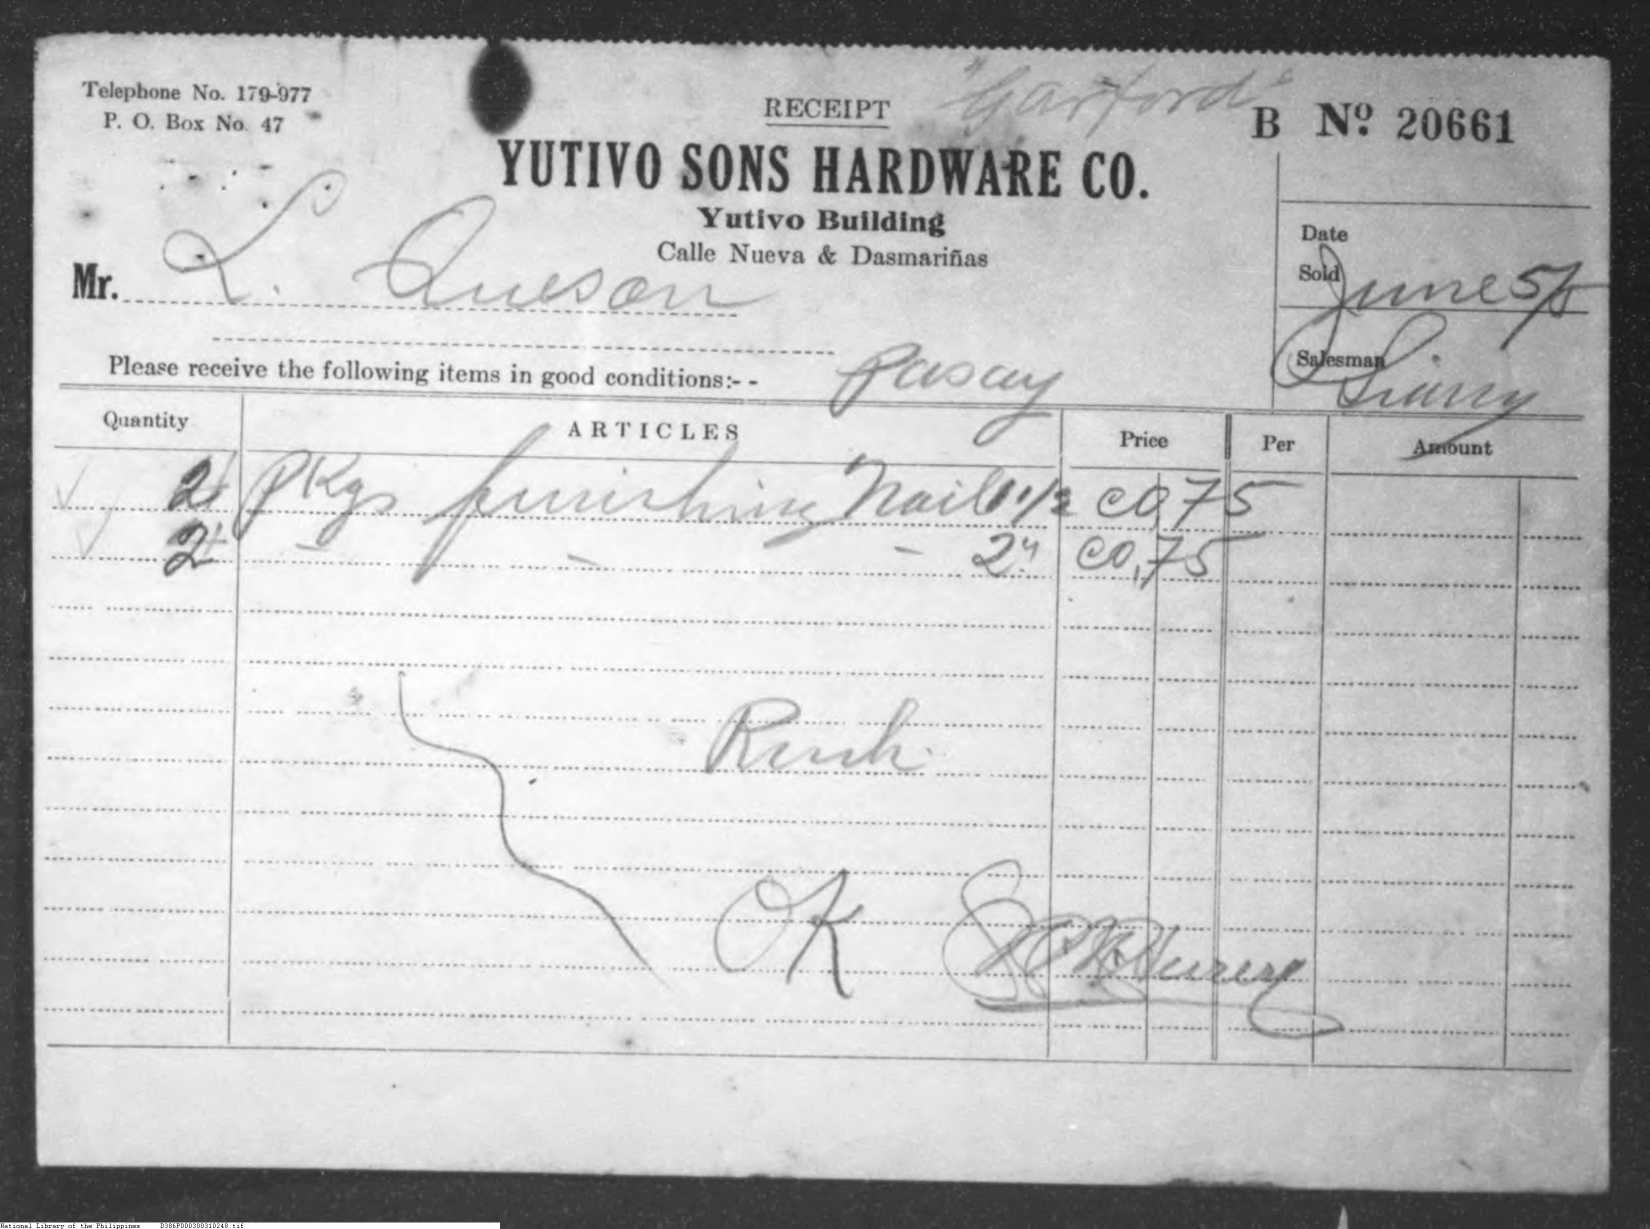 Telephone No. 179-977
P. O. Box No. 47
RECEIPT
"Garford"
B Nº 20661
YUTIVO SONS HARDWARE CO.
Yutivo Building
Calle Nueva & Dasmariñas
Mr. L. Queson
Date
Sold June 5/5
Salesman
Please receive the following items in good conditions:- -
Pasay
Quantity ARTICLES Price Per Amount
2 Pkgs finishing Nail 1 1/2 c0,75
2 — — — 2" c0,75
Rush
OK
National Library of the Philippines D386P000300310248.tif